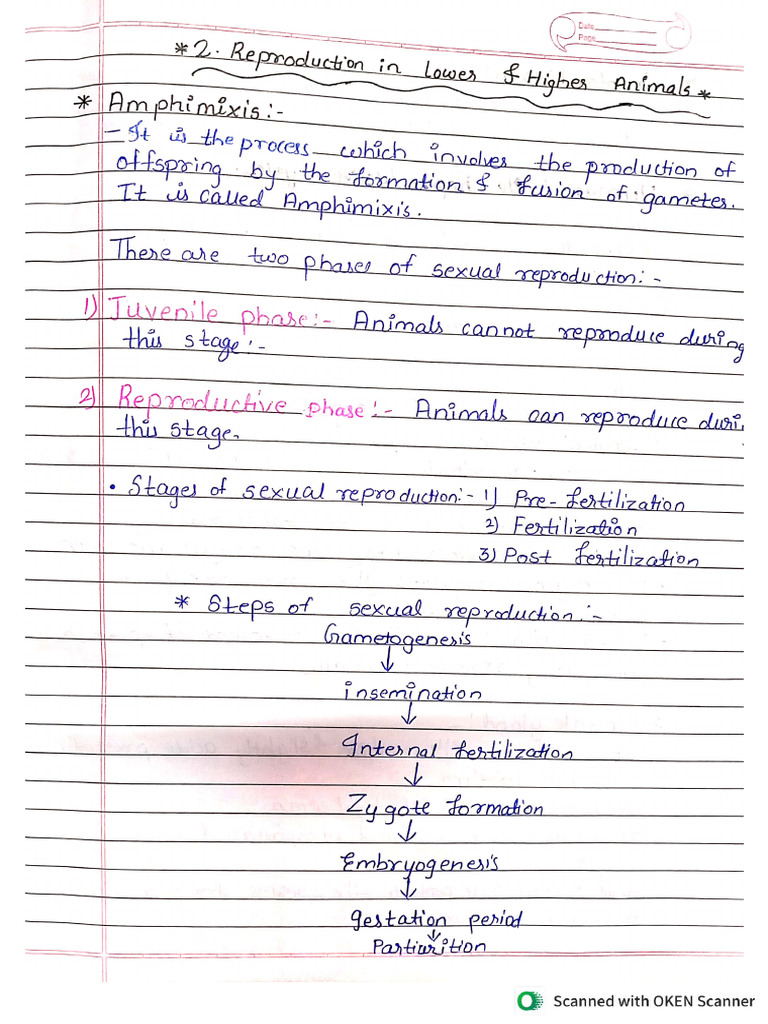 Date
Page
* 2. Reproduction in Lower & Higher Animals *
* Amphimixis :-
- It is the process which involves the production of
offspring by the formation & fusion of gametes.
It is called Amphimixis.
There are two phases of sexual reproduction :-
1) Juvenile phase :- Animals cannot reproduce during
this stage :-
2) Reproductive phase :- Animals can reproduce duri
this stage.
• Stages of sexual reproduction :- 1) Pre-fertilization
2) Fertilization
3) Post fertilization
* Steps of sexual reproduction :-
Gametogenesis
↓
insemination
↓
Internal fertilization
↓
Zygote formation
↓
Embryogenesis
↓
gestation period
↓
Partiurition
Scanned with OKEN Scanner